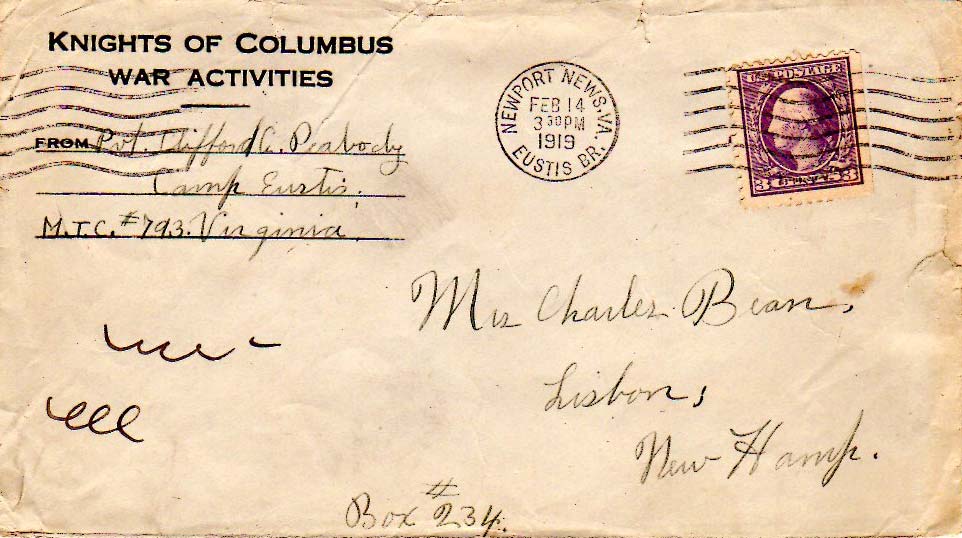 KNIGHTS OF COLUMBUS
WAR ACTIVITIES
FROM Pvt. Clifford C. Peabody
Camp Eustis,
M.T.C. #793. Virginia.
NEWPORT NEWS, VA.
FEB 14
3 30 PM
1919
EUSTIS BR.
U.S. POSTAGE
3 CENTS 3
Mrs Charles Bean,
Lisbon,
New Hamp.
#
Box 234.